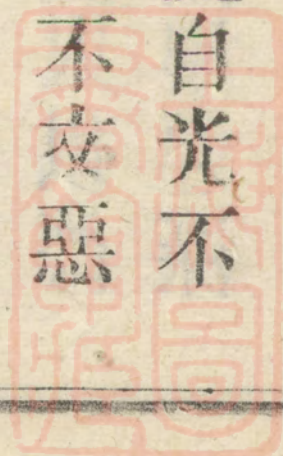 自光不
不交惡